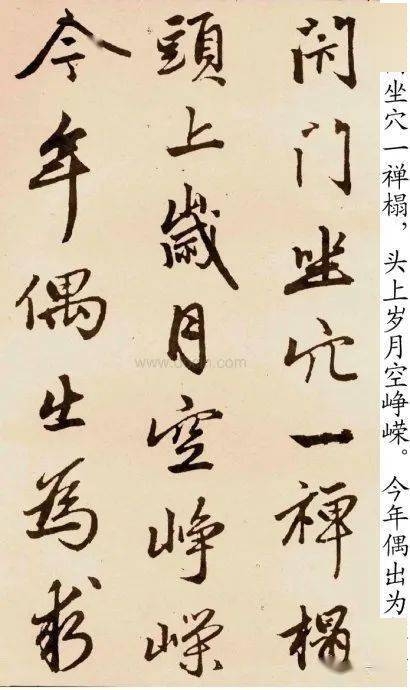 閉門坐穴一禪榻
頭上歲月空崢嶸
今年偶出為求
坐穴一禅榻，头上岁月空峥嵘。今年偶出为